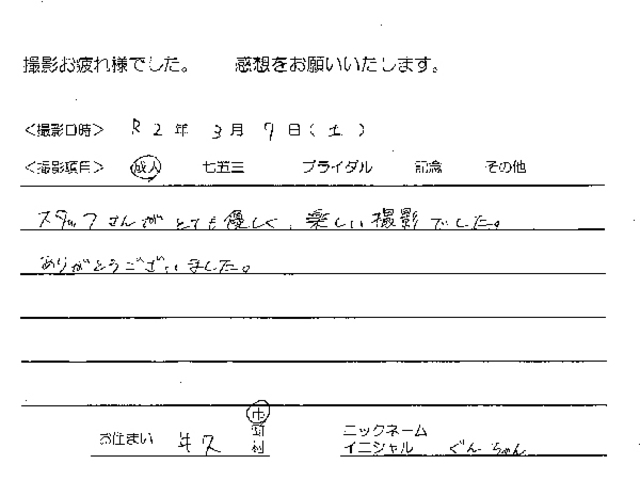 撮影お疲れ様でした。 感想をお願いいたします。
<撮影日時> R 2 年 3 月 7 日(土)
<撮影項目> 成人 七五三 ブライダル 記念 その他
スタッフさんがとても優しく、楽しい撮影でした。
ありがとうございました。
お住まい 牛久 市 町 村
ニックネーム
イニシャル ぐんちゃん